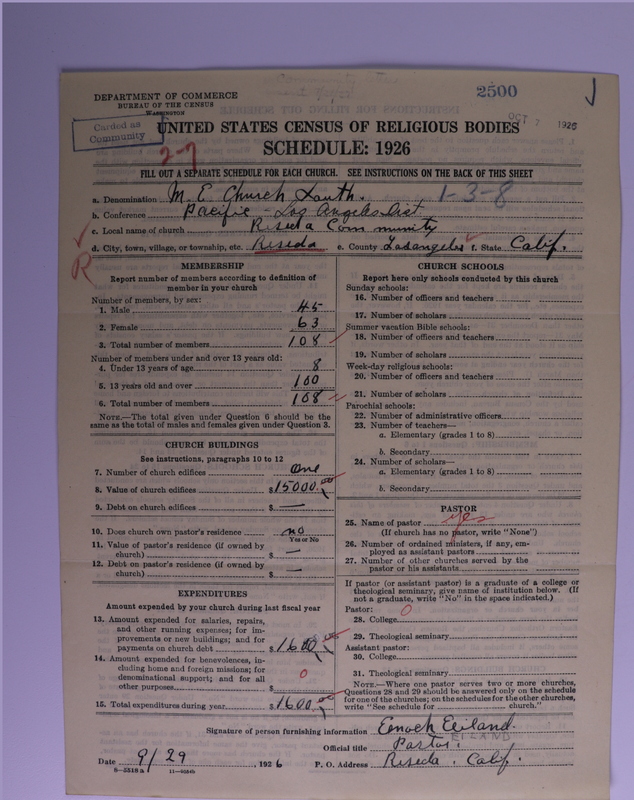 2500
DEPARTMENT OF COMMERCE
BUREAU OF THE CENSUS
WASHINGTON
OCT 7 1926
Carded as
Community
UNITED STATES CENSUS OF RELIGIOUS BODIES
SCHEDULE: 1926
2-7
FILL OUT A SEPARATE SCHEDULE FOR EACH CHURCH. SEE INSTRUCTIONS ON THE BACK OF THIS SHEET
a. Denomination M. E. Church South. 1-3-8
b. Conference Pacific - Los Angeles Dist.
c. Local name of church Reseda Community
d. City, town, village, or township, etc. Reseda e. County Los angeles f. State Calif.
R
MEMBERSHIP
Report number of members according to definition of
member in your church
Number of members, by sex:
1. Male 45
2. Female 63
3. Total number of members 108
Number of members under and over 13 years old:
4. Under 13 years of age 8
5. 13 years old and over 100
6. Total number of members 108
NOTE.—The total given under Question 6 should be the
same as the total of males and females given under Question 3.
CHURCH BUILDINGS
See instructions, paragraphs 10 to 12
7. Number of church edifices one
8. Value of church edifices $15000.00
9. Debt on church edifices $ —
10. Does church own pastor's residence no
Yes or No
11. Value of pastor's residence (if owned by
church) $ —
12. Debt on pastor's residence (if owned by
church) $ —
EXPENDITURES
Amount expended by your church during last fiscal year
13. Amount expended for salaries, repairs,
and other running expenses; for im-
provements or new buildings; and for
payments on church debt $1600
14. Amount expended for benevolences, in-
cluding home and foreign missions; for
denominational support; and for all
other purposes $ 0
15. Total expenditures during year $1600.00
CHURCH SCHOOLS
Report here only schools conducted by this church
Sunday schools:
16. Number of officers and teachers
17. Number of scholars
Summer vacation Bible schools:
18. Number of officers and teachers
19. Number of scholars
Week-day religious schools:
20. Number of officers and teachers
21. Number of scholars
Parochial schools:
22. Number of administrative officers
23. Number of teachers—
a. Elementary (grades 1 to 8)
b. Secondary
24. Number of scholars—
a. Elementary (grades 1 to 8)
b. Secondary
PASTOR
25. Name of pastor yes
(If church has no pastor, write "None")
26. Number of ordained ministers, if any, em-
ployed as assistant pastors
27. Number of other churches served by the
pastor or his assistants
If pastor (or assistant pastor) is a graduate of a college or
theological seminary, give name of institution below. (If
not a graduate, write "No" in the space indicated.)
Pastor: 0
28. College
29. Theological seminary
Assistant pastor:
30. College
31. Theological seminary
NOTE.—Where one pastor serves two or more churches,
Questions 28 and 29 should be answered only on the schedule
for one of the churches; on the schedules for the other churches,
write "See schedule for church."
Signature of person furnishing information Enoch Eiland.
EILAND
Official title Pastor.
Date 9/29, 1926 P. O. Address Reseda. Calif.
8-5518a 11-9084b